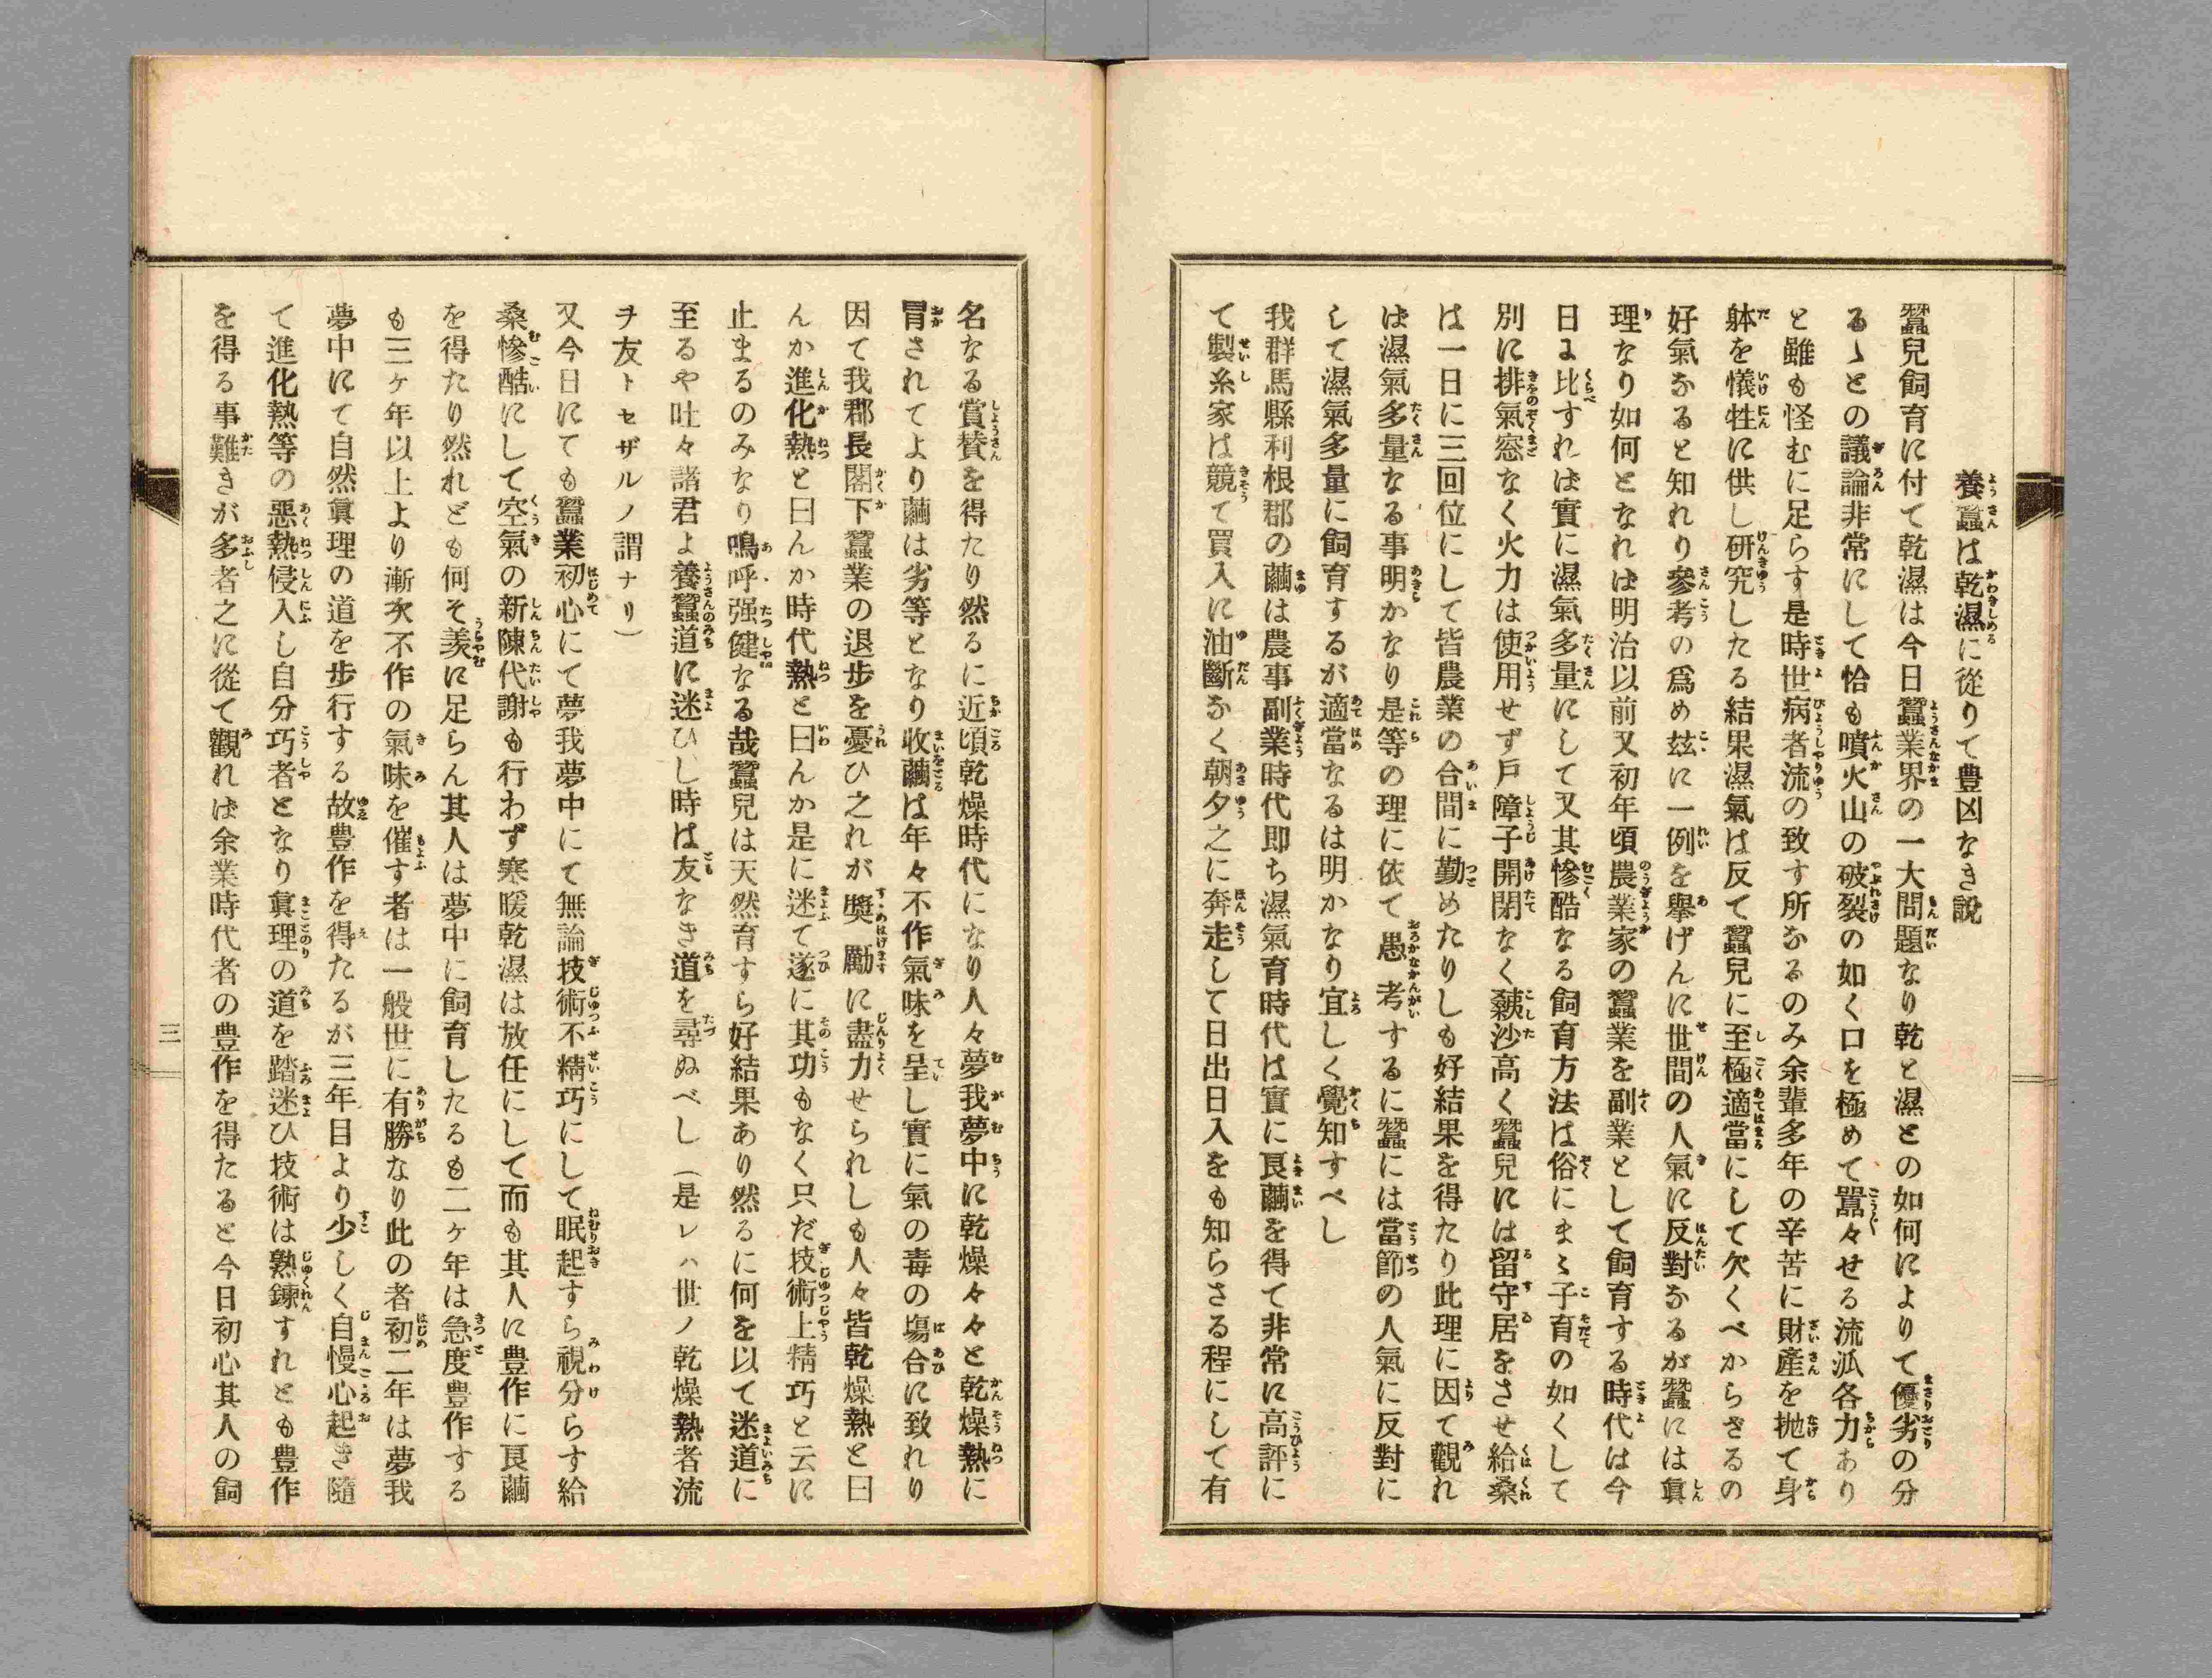 養蠶は乾濕に從りて豊凶なき説
蠶兒飼育に付て乾濕は今日蠶業界の一大問題なり乾と濕との如何によりて優劣の分
るゝとの議論非常にして恰も噴火山の破裂の如く口を極めて囂々せる流派各力あり
と雖も怪むに足らす是時世病者流の致す所なるのみ余輩多年の辛苦に財產を抛て身
躰を犠牲に供し研究したる結果濕氣は反て蠶兒に至極適當にして欠くべからざるの
好氣なると知れり參考の爲め玆に一例を擧げんに世間の人氣に反對なるが蠶には眞
理なり如何となれは明治以前又初年頃農業家の蠶業を副業として飼育する時代は今
日に比すれは實に濕氣多量にして又其慘酷なる飼育方法は俗にまゝ子育の如くして
別に排氣窓なく火力は使用せず戸障子開閉なく蠶沙高く蠶兒には留守居をさせ給桑
は一日に三回位にして皆農業の合間に勤めたりしも好結果を得たり此理に因て觀れ
は濕氣多量なる事明かなり是等の理に依て愚考するに蠶には當節の人氣に反對に
して濕氣多量に飼育するが適當なるは明かなり宜しく覺知すべし
我群馬縣利根郡の繭は農事副業時代即ち濕氣育時代は實に良繭を得て非常に高評に
て製糸家は競て買入に油斷なく朝夕之に奔走して日出日入をも知らさる程にして有
名なる賞賛を得たり然るに近頃乾燥時代になり人々夢我夢中に乾燥々々と乾燥熱に
冒されてより繭は劣等となり收繭は年々不作氣味を呈し實に氣の毒の塲合に致れり
因て我郡長閣下蠶業の退步を憂ひ之れが奬勵に盡力せられしも人々皆乾燥熱と曰
んか進化熱と曰んか時代熱と曰んか是に迷て遂に其功もなく只だ技術上精巧と云に
止まるのみなり嗚呼强健なる哉蠶兒は天然育すら好結果あり然るに何を以て迷道に
至るや吐々諸君よ養蠶道に迷ひし時は友なき道を尋ぬべし（是レハ世ノ乾燥熱者流
ヲ友トセザルノ謂ナリ）
又今日にても蠶業初心にて夢我夢中にて無論技術不精巧にして眠起すら視分らす給
桑慘酷にして空氣の新陳代謝も行わず寒暖乾濕は放任にして而も其人に豊作に良繭
を得たり然れども何そ羨に足らん其人は夢中に飼育したるも二ケ年は急度豊作する
も三ケ年以上より漸次不作の氣味を催す者は一般世に有勝なり此の者初二年は夢我
夢中にて自然眞理の道を步行する故豊作を得たるが三年目より少しく自慢心起き隨
て進化熱等の惡熱侵入し自分巧者となり眞理の道を踏迷ひ技術は熟鍊すれとも豊作
を得る事難きが多者之に從て觀れは余業時代者の豊作を得たると今日初心其人の飼
三